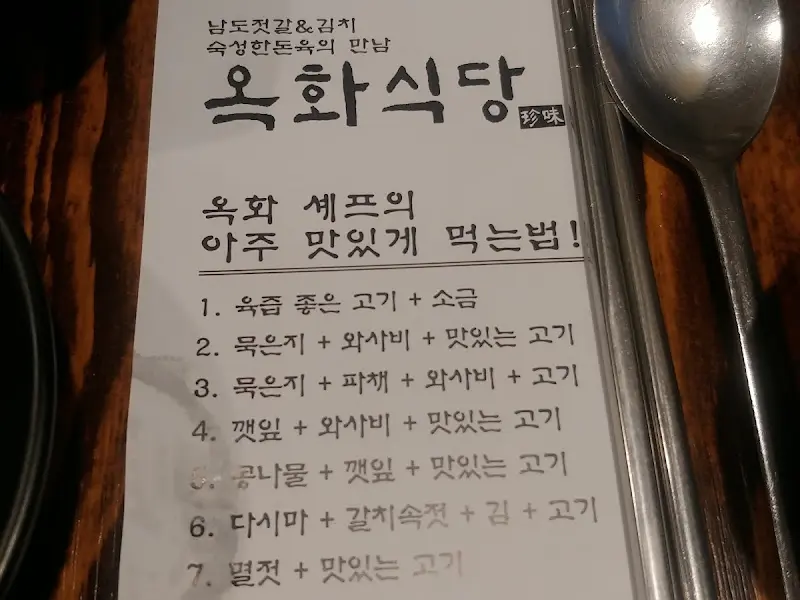 남도젓갈&김치
숙성한돈육의 만남
옥화식당
珍味
옥화 셰프의
아주 맛있게 먹는법!
1. 육즙 좋은 고기 + 소금
2. 묵은지 + 와사비 + 맛있는 고기
3. 묵은지 + 파채 + 와사비 + 고기
4. 깻잎 + 와사비 + 맛있는 고기
5. 콩나물 + 깻잎 + 맛있는 고기
6. 다시마 + 갈치속젓 + 김 + 고기
7. 멸젓 + 맛있는 고기